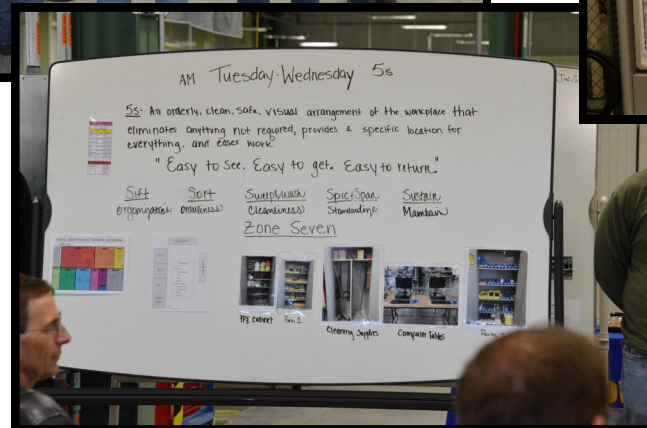 AM Tuesday-Wednesday 5s
5s- An orderly, clean, safe, visual arrangement of the workplace that
eliminates anything not required, provides a specific location for
everything, and eases work
"Easy to see. Easy to get. Easy to return."
Sift Sort Sweep&Wash Spic&Span Sustain
Organization Orderliness Cleanliness Standardize Maintain
Zone Seven
PPE Cabinet
Cleaning Supplies Computer Tables